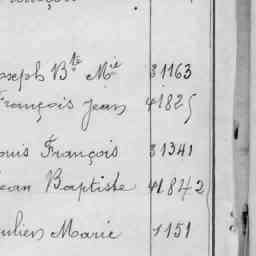 oseph Bte Mie 31163
François Jean 41825
ouis François 31341
ean Baptiste 41842
ulien Marie 1151